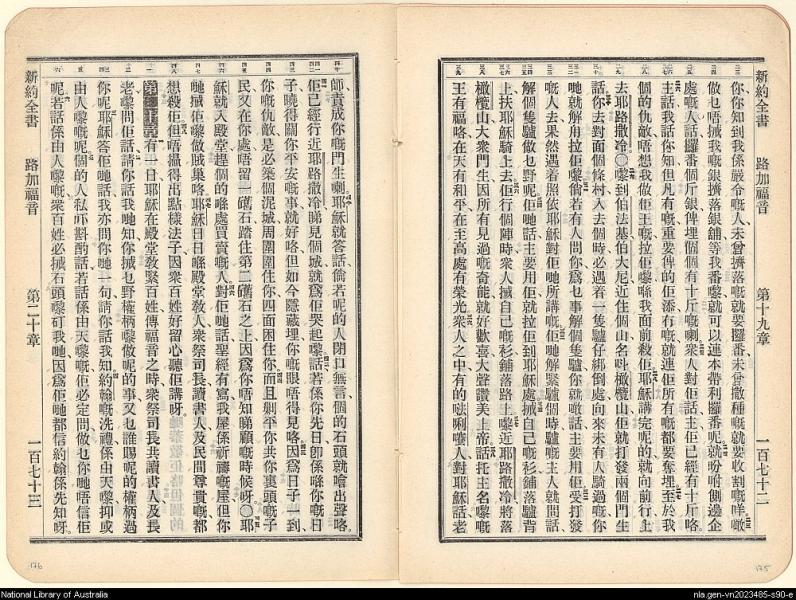 新約全書 路加福音 第十九章 一百七十二
你你知到我係嚴令嘅人未曾擠落嘅就要攞番未曾撒種嘅就要收割嘅咩噉
做乜唔搣我嘅銀擠落銀舖等我番嚟就可以連本帶利攞番呢就吩咐側邊企
處嘅人話攞番個斤銀俾埋個個有十斤嘅喇衆人對佢話主佢已經有十斤咯
主話我話你知但凡有嘅重要俾的佢添冇嘅就連佢所有嘅都要奪埋至於我
個的仇敵唔想我做佢王嘅拉佢嚟喺我面前殺佢耶穌講完呢的就向前行上
去耶路撒冷〇嚟到伯法基伯大尼近住個山名叫橄欖山佢就打發兩個門生
話你去對面個條村入去個時必遇着一隻驢仔綁倒處向來未有人騎過嘅你
哋就解甩拉佢嚟倘若有人問你爲乜事解個隻驢你就噉話主要用佢受打發
嘅人去果然遇着照依耶穌對佢哋所講嘅佢哋解緊驢個時驢嘅主人就問話
解個隻驢做乜野呢佢哋話主要用佢就拉佢到耶穌處搣自己嘅衫舖落驢背
上扶耶穌騎上去佢行個陣時衆人搣自己嘅衫舖落路上嚟近耶路撒冷將落
橄欖山大衆門生因所有見過嘅奇能就好歡喜大聲讚美上帝話托主名嚟嘅
王有福咯在天有和平在至高處有榮光衆人之中有的𠵽唎㘔人對耶穌話老
師責成你嘅門生喇耶穌就答話倘若呢的人閉口無言個的石頭就噲出聲咯
佢已經行近耶路撒冷睇見個城就爲佢哭起嚟話若係你先日卽係喺你嘅日
子曉得關你平安嘅事就好咯但如今隱藏埋你嘅眼唔得見咯因爲日子一到
你嘅仇敵是必築個泥城周圍圍住你四面困住你而且剷平你共你裏頭嘅子
民又在你處唔留一嚿石踏住第二嚿石之上因爲你唔知睇顧嘅時候呀〇耶
穌就入殿堂趕個的喺處買賣嘅人對佢哋話聖經有寫我屋係祈禱嘅屋但你
哋搣佢嚟做賊巢咯耶穌日日喺殿堂敎人衆祭司長讀書人及民間尊貴嘅都
想殺佢但唔搵得出點樣法子因衆百姓好留心聽佢講呀
第二十章有一日耶穌在殿堂敎緊百姓傳福音之時衆祭司長共讀書人及長
老嚟問佢話請你話我哋知你搣乜野權柄嚟做呢的事又乜誰賜呢的權柄過
你呢耶穌答佢哋話我亦問你哋一句請你話我知約翰嘅洗禮係由天嚟抑或
由人嚟嘅呢個的人私吓斟酌話若話係由天嚟嘅佢必定問做乜你哋唔信佢
呢若話係由人嚟嘅衆百姓必搣石頭嚟矴我哋因爲佢哋都信約翰係先知呀
新約全書 路加福音 第二十章 一百七十三
176
175
National Library of Australia
nla.gen-vn2023485-s90-e